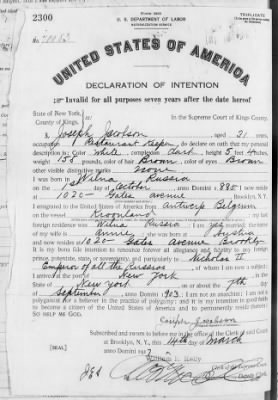 2300
Form 2203
U. S. DEPARTMENT OF LABOR
NATURALIZATION SERVICE
TRIPLICATE
No.
UNITED STATES OF AMERICA
DECLARATION OF INTENTION
Invalid for all purposes seven years after the date hereof
State of New York,
County of Kings,
In the Supreme Court of Kings County.
I, Joseph Jacobson aged 31 years,
occupation Restaurant Keeper, do declare on oath that my personal
description is: Color White, complexion dark, height 5 feet 4 inches,
weight 150 pounds, color of hair Brown, color of eyes Brown
other visible distinctive marks none
I was born in Wilna Russia
on the 15 day of October, anno Domini 1885; I now reside
at 1020 Gates avenue Brooklyn, N. Y.
I emigrated to the United States of America from Antwerp Belgium
on the vessel Kroonland; my last
foreign residence was Wilna Russia I am married; the name
of my wife is Annie; she was born at Austria
and now resides at 1020 Gates avenue Brooklyn
It is my bona fide intention to renounce forever all allegiance and fidelity to any foreign
prince, potentate, state, or sovereignty, and particularly to Nicholas II
Emperor of all the Russias, of whom I am now a subject;
I arrived at the port of New York, in the
State of New York, on or about the 7th day
of September, anno Domini 1903; I am not an anarchist; I am not a
polygamist nor a believer in the practice of polygamy; and it is my intention in good faith
to become a citizen of the United States of America and to permanently reside therein:
SO HELP ME GOD.
Subscribed and sworn to before me in the office of the Clerk of said Court
at Brooklyn, N. Y., this 14th day of March
anno Domini 191
[SEAL]
William E. Kelly